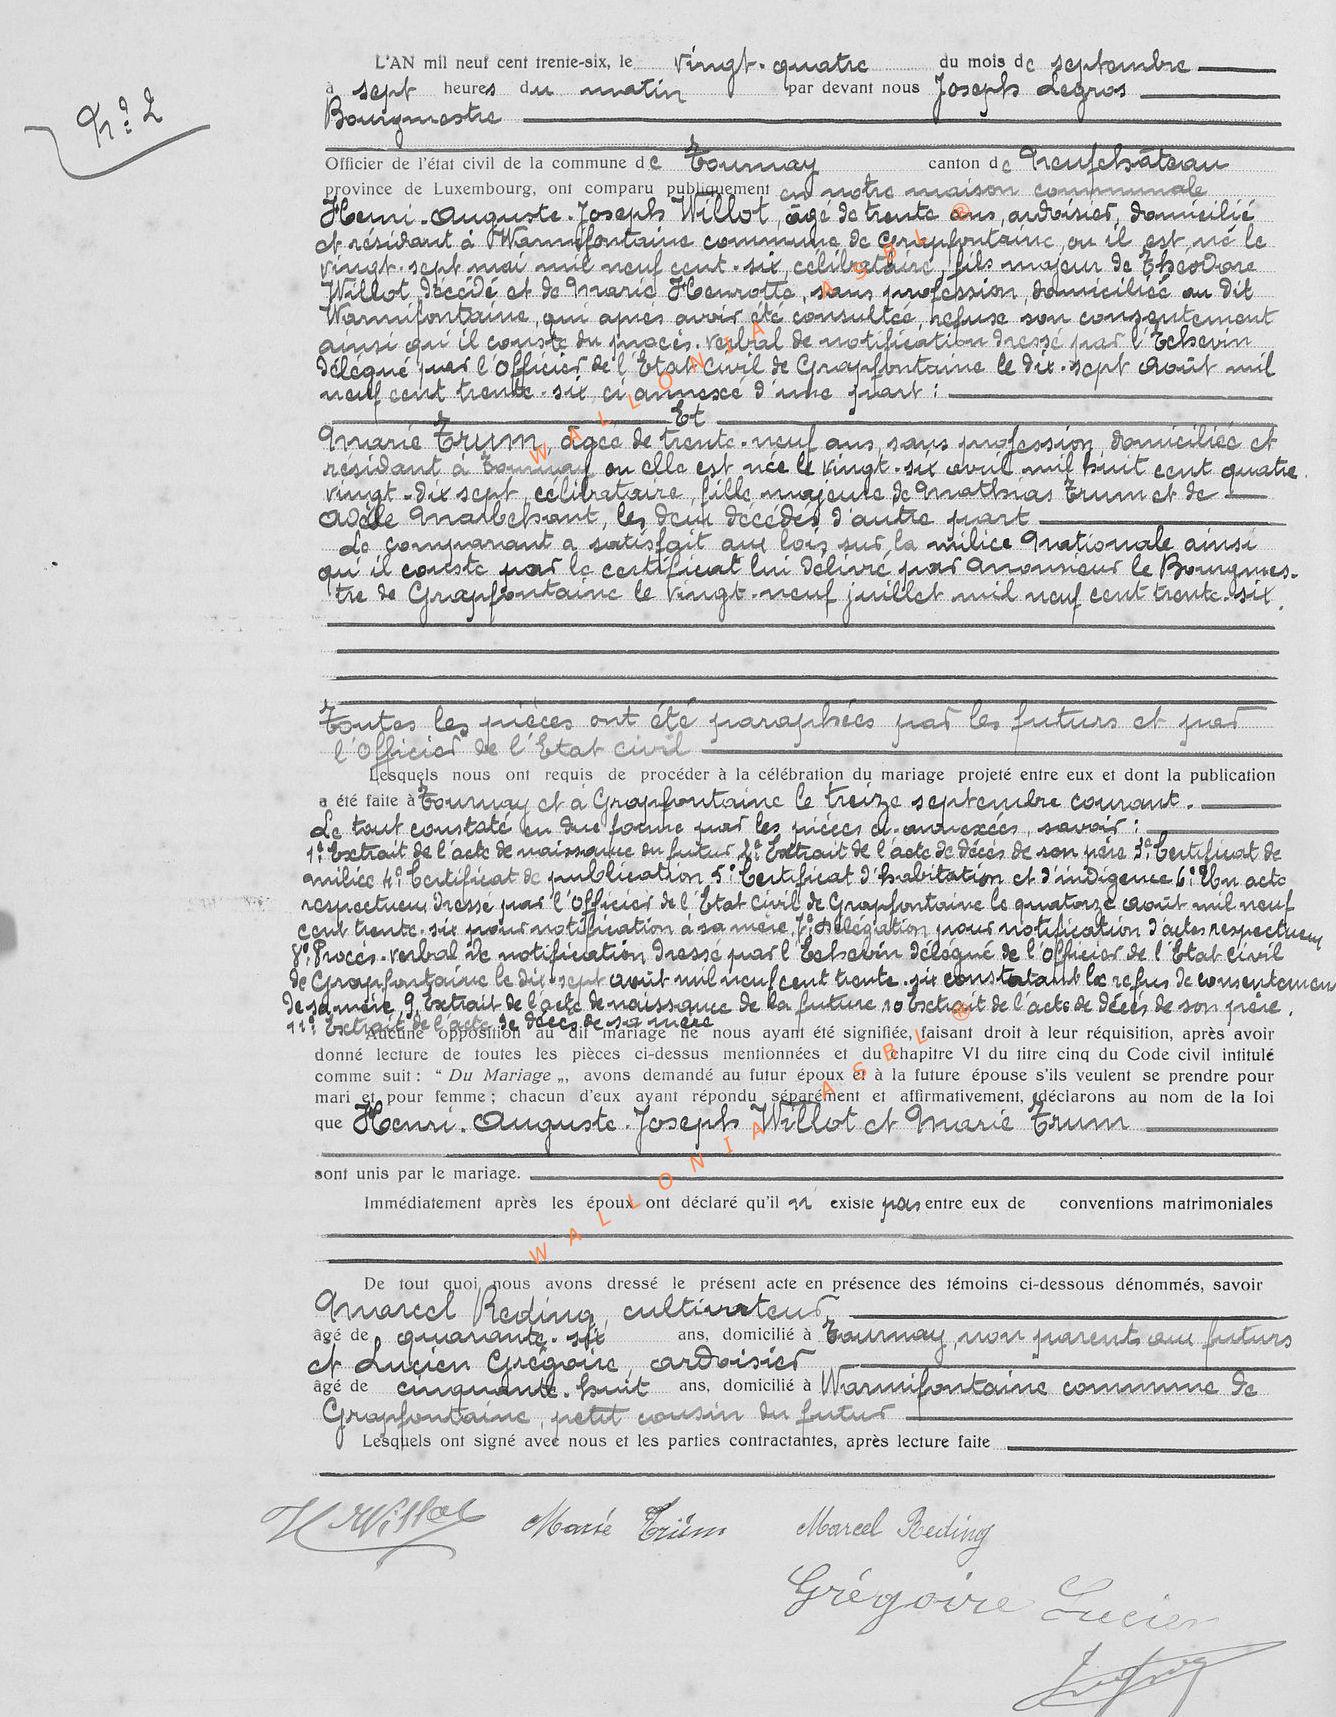 N° 2
L'AN mil neuf cent trente-six, le vingt-quatre du mois de septembre
à sept heures du matin par devant nous Joseph Legros
Bourgmestre
Officier de l'état civil de la commune de Tournay canton de Neufchâteau
province de Luxembourg, ont comparu publiquement en notre maison communale
Henri-Auguste-Joseph Willot, âgé de trente ans, ardoisier, domicilié
et résidant à Warmifontaine commune de Grapfontaine, ou il est né le
vingt-sept mai mil neuf cent-six, célibataire, fils majeur de Théodore
Willot, décédé et de Marie Henrotte, sans profession, domiciliée au dit
Warmifontaine, qui après avoir été consultée, refuse son consentement
ainsi qu'il conste du procès-verbal de notification dressé par l'Echevin
délégué par l'Officier de l'Etat Civil de Grapfontaine le dix-sept août mil
neuf cent trente-six ci annexé d'une part :
Et
Marie Trum, âgée de trente-neuf ans, sans profession, domiciliée et
résidant à Tournay ou elle est née le vingt-six avril mil huit cent quatre
vingt-dix sept, célibataire, fille majeure de Mathias Trum et de
Adèle Marbehant, les deux décédés d'autre part
Le comparant a satisfait aux lois sur la milice Nationale ainsi
qu'il conste par le certificat lui délivré par Monsieur le Bourgmes-
tre de Grapfontaine le vingt-neuf juillet mil neuf cent trente-six.
Toutes les pièces ont été paraphées par les futurs et par
l'Officier de l'Etat civil
Lesquels nous ont requis de procéder à la célébration du mariage projeté entre eux et dont la publication
a été faite à Tournay et à Grapfontaine le treize septembre courant.
Le tout constaté en due forme par les pièces ci-annexées, savoir :
1° Extrait de l'acte de naissance du futur 2° Extrait de l'acte de décès de son père 3° Certificat de
milice 4° Certificat de publication 5° Certificat d'habitation et d'indigence 6° Un acte
respectueux dressé par l'Officier de l'Etat Civil de Grapfontaine le quatorze août mil neuf
cent trente-six pour notification à sa mère, 7° Délégation pour notification d'actes respectueux
8° Procès-verbal de notification dressé par l'Echevin délégué de l'Officier de l'Etat Civil
de Grapfontaine le dix-sept août mil neuf cent trente-six constatant le refus de consentement
de sa mère, 9 Extrait de l'acte de naissance de la future 10 Extrait de l'acte de décès de son père.
11° Extrait de l'acte de décès de sa mère
Aucune opposition au dit mariage ne nous ayant été signifiée, faisant droit à leur réquisition, après avoir
donné lecture de toutes les pièces ci-dessus mentionnées et du chapitre VI du titre cinq du Code civil intitulé
comme suit : “ Du Mariage „, avons demandé au futur époux et à la future épouse s'ils veulent se prendre pour
mari et pour femme ; chacun d'eux ayant répondu séparément et affirmativement, déclarons au nom de la loi
que Henri-Auguste-Joseph Willot et Marie Trum
sont unis par le mariage.
Immédiatement après les époux ont déclaré qu'il n' existe pas entre eux de conventions matrimoniales
De tout quoi nous avons dressé le présent acte en présence des témoins ci-dessous dénommés, savoir
Marcel Reding, cultivateur,
âgé de quarante-six ans, domicilié à Tournay, non parents aux futurs
et Lucien Grégoire, ardoisier
âgé de cinquante-huit ans, domicilié à Warmifontaine commune de
Grapfontaine, petit cousin du futur
Lesquels ont signé avec nous et les parties contractantes, après lecture faite
H Willot Marie Trüm Marcel Reding
Grégoire Lucien
WALLONIA ASBL ®
WALLONIA ASBL ®